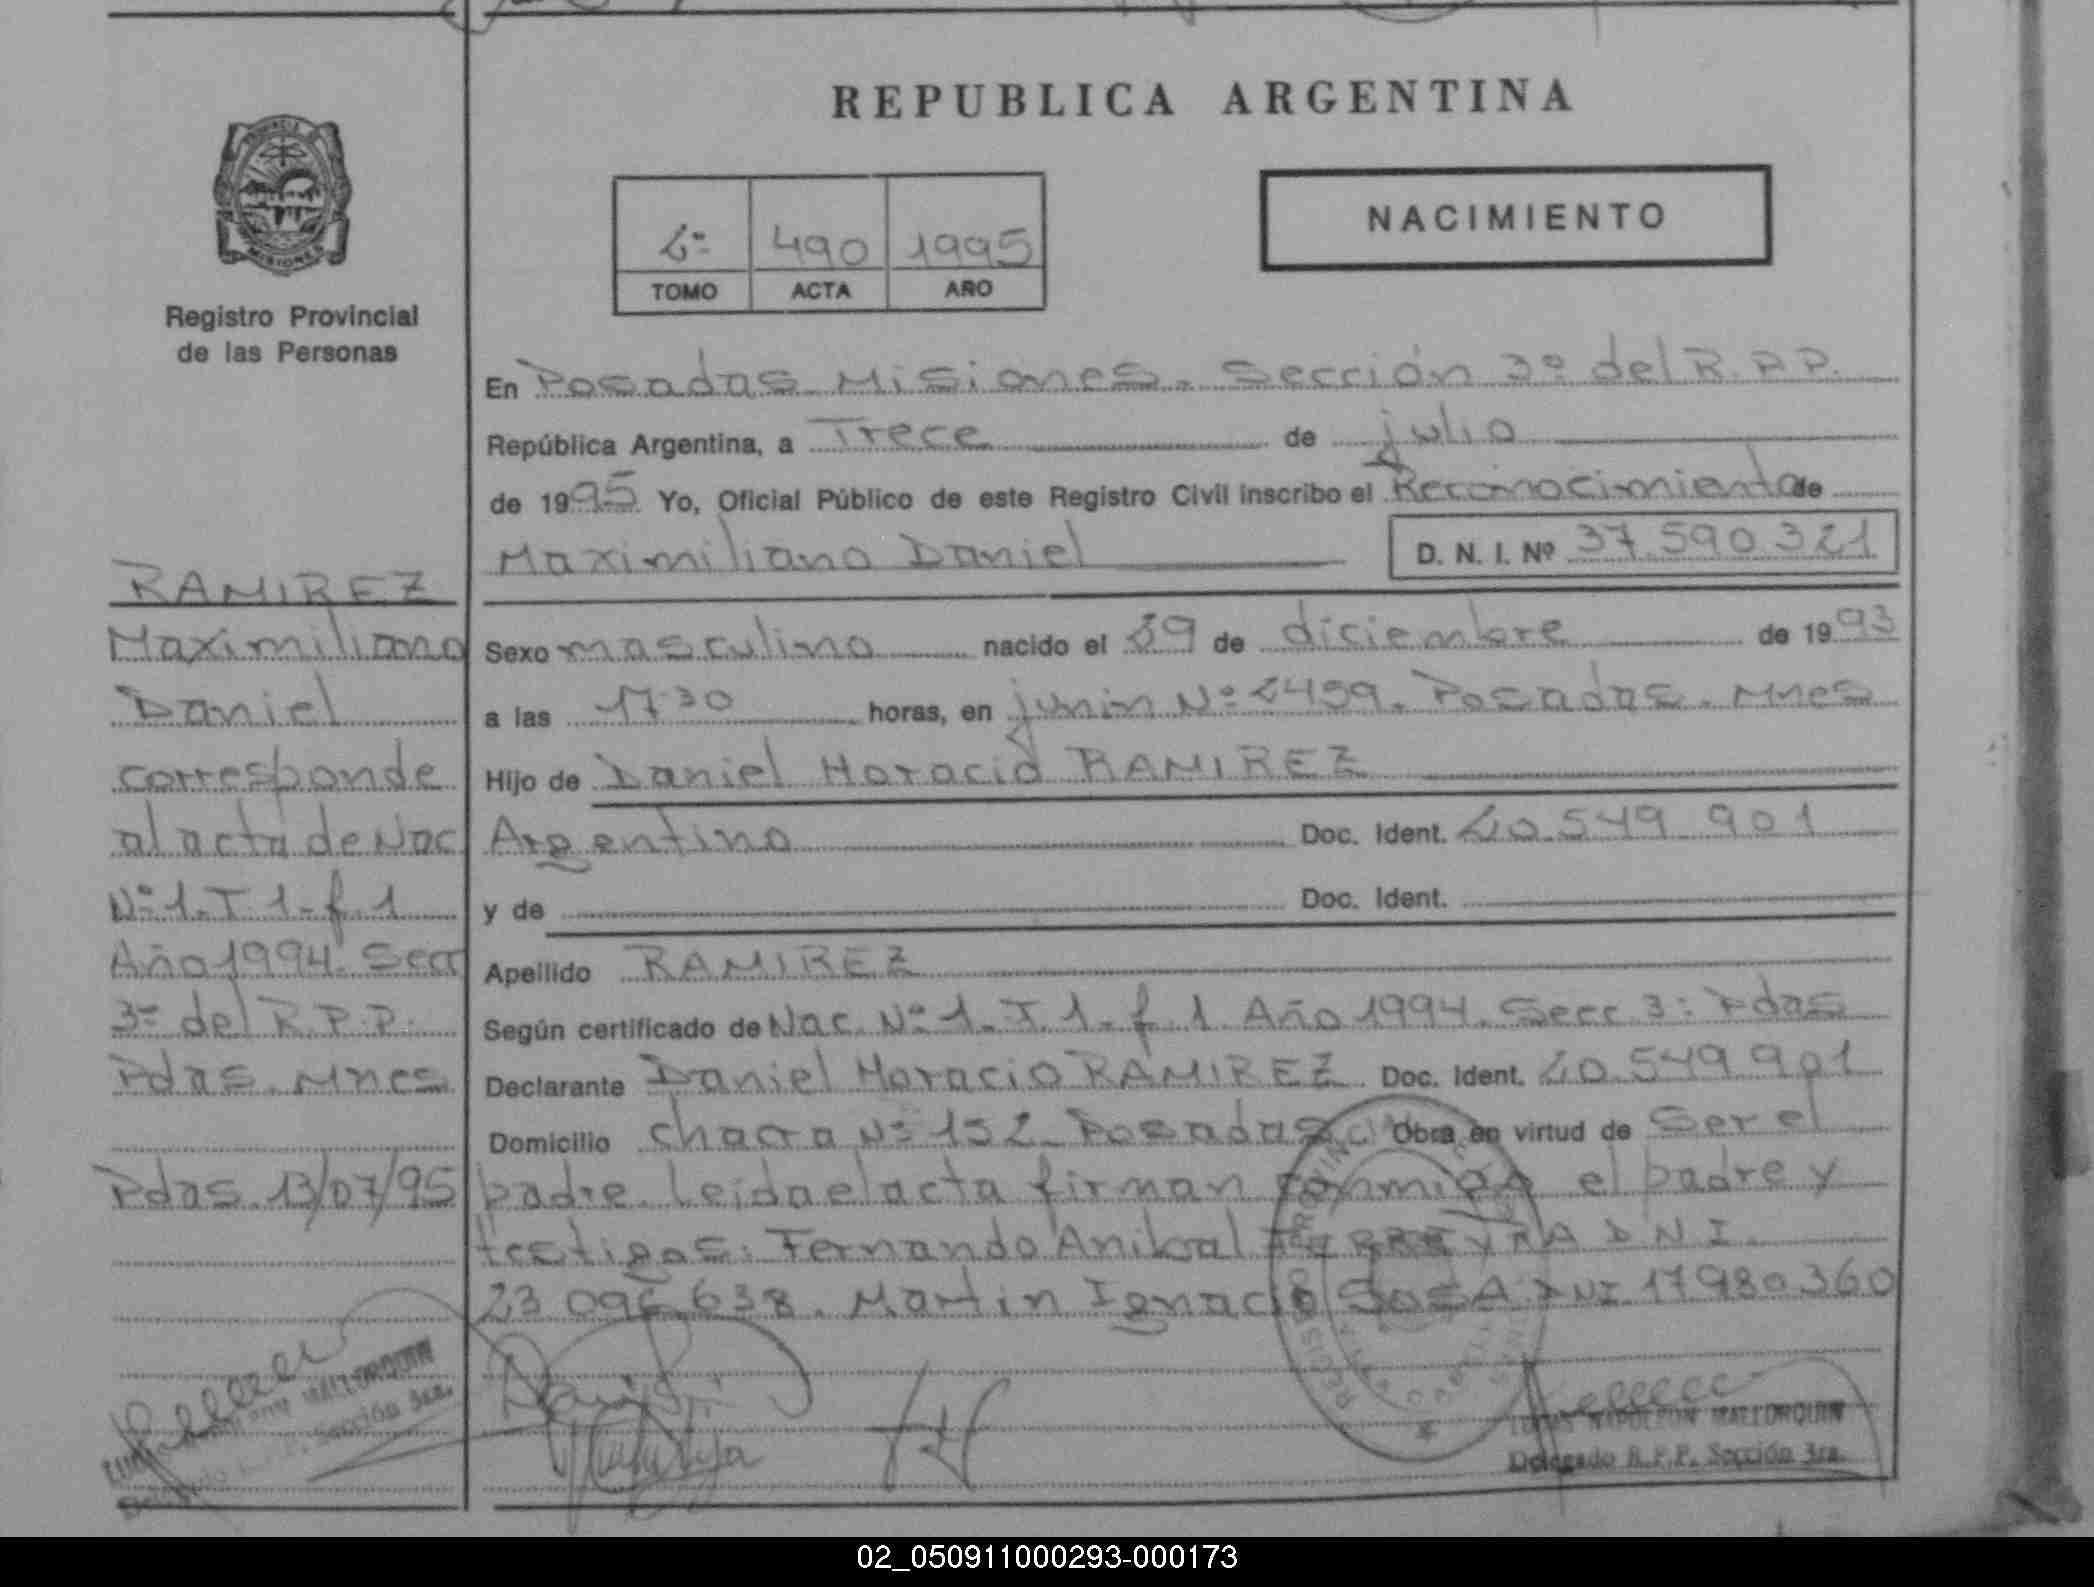 REPUBLICA ARGENTINA
PROVINCIA DE
MISIONES
Registro Provincial
de las Personas
2º 490 1995
TOMO ACTA AÑO
NACIMIENTO
En Posadas Misiones. Sección 3º del R.P.P.
República Argentina, a Trece de julio
de 1995 Yo, Oficial Público de este Registro Civil inscribo el Reconocimiento de
Maximiliano Daniel
D. N. I. Nº 37.590.321
Sexo masculino nacido el 29 de diciembre de 1993
a las 17 30 horas, en junin Nº 2459. Posadas. Mnes
Hijo de Daniel Horacio RAMIREZ
Argentino Doc. Ident. 20.549.901
y de Doc. Ident.
Apellido RAMIREZ
Según certificado de Nac. Nº 1. T. 1. f. 1 Año 1994. Secc 3: Pdas
Declarante Daniel Horacio RAMIREZ. Doc. Ident. 20.549.901
Domicilio chacra Nº 152. Posadas Obra en virtud de ser el
padre. Leida el acta firman conmigo el padre y
testigos: Fernando Anibal FERREYRA D N I.
23 096.638. Martin Ignacio SOSA DNI 17980360
RAMIREZ
Maximiliano
Daniel
corresponde
al acta de Nac
Nº 1. T 1. f. 1
Año 1994. Secc
3º del R.P.P.
Pdas. Mnes
Pdas. 13/07/95
MALLORQUIN
Sección 3ra.
NAPOLEON MALLORQUIN
Delegado R.P.P. Sección 3ra.
02_050911000293-000173